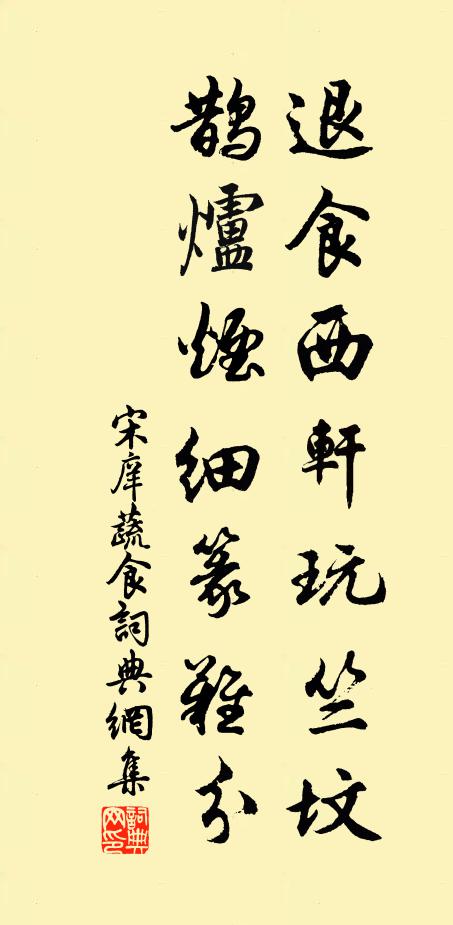 退食西軒玩竺墳
鵲爐煙細篆難分
宋庠蔬食詞典網集
詞典网印